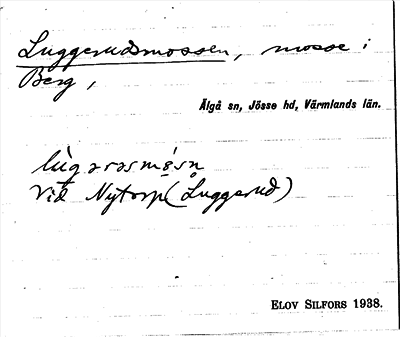 Luggerudsmossen, mosse i
Berg,
Älgå sn, Jösse hd, Värmlands län.
lùgərəsmósn
Vid Nytorp (Luggerud)
ELOV SILFORS 1938.